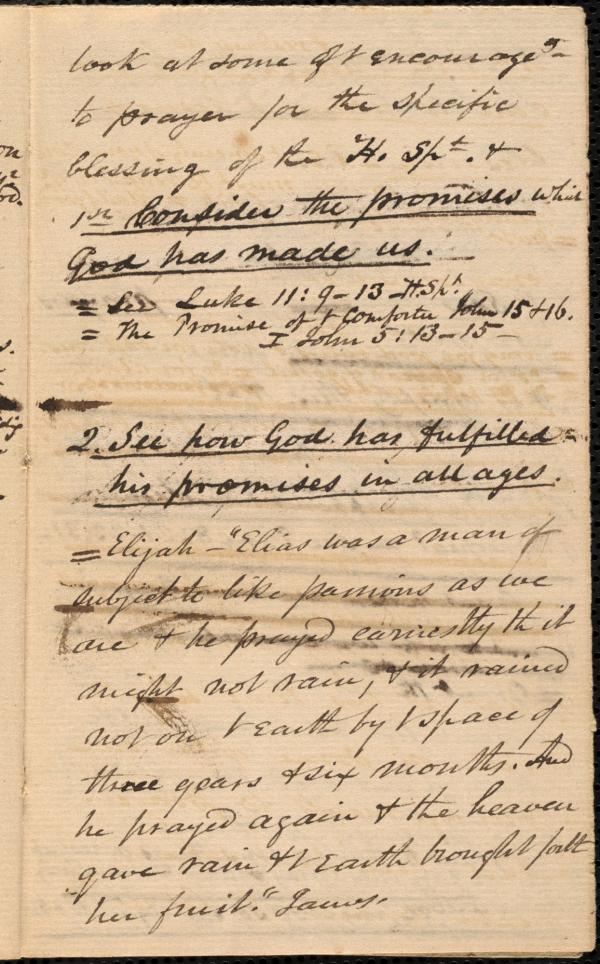 look at some of t encourage^ts
to prayer for the specific
blessing of the H. Spt. &
1st Consider the promises which
God has made us.
= See Luke 11:9-13 - H.Spt.
= The Promise of t Comforter John 15 & 16.
I John 5:13-15 -
2. See how God has fulfilled =
his promises in all ages.
= Elijah - "Elias was a man of
subject to like passions as we
are & he prayed earnestly th it
might not rain, & it rained
not on t Earth by t space of
three years & six months. And
he prayed again & the heaven
gave rain & t Earth brought forth
her fruit." James.